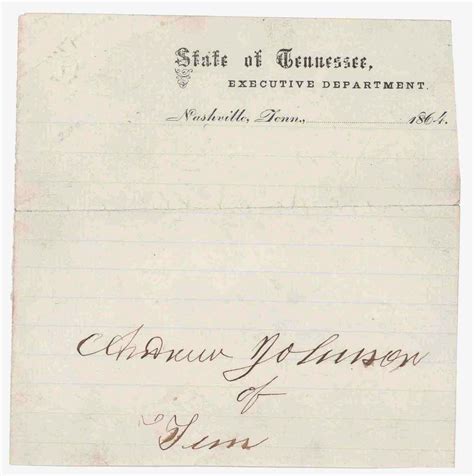 State of Tennessee,
EXECUTIVE DEPARTMENT.
Nashville, Tenn., 1864.
Andrew Johnson
of
Tenn